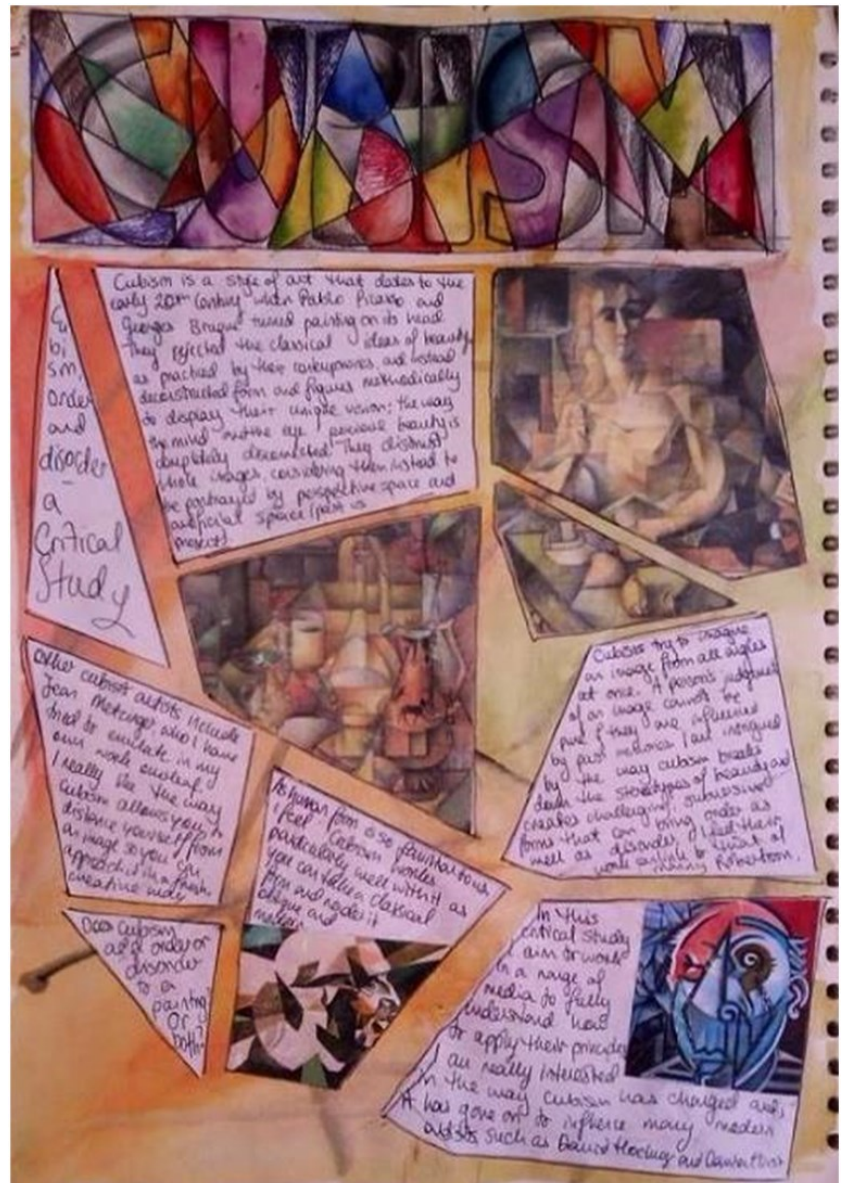 CUBISM
Cu
bi
sm
order
and
disorder
-
a
Critical
Study
Cubism is a style of art that dates to the
early 20th Century when Pablo Picasso and
Georges Braque turned painting on its head
They rejected the classical ideas of beauty
as practiced by their contemporaries, and instead
deconstructed form and figures methodically
to display their unique vision: the way
the mind and the eye perceive beauty is
completely They
whole images, considering them instead to
be portrayed by perspective space and
artificial space (past vs
present)
Cubism try to imagine
an image from all angles
at once. A person's judgment
of an image cannot be
pure if they are influenced
by past I am intrigued
by the way cubism breaks
down the stereotypes of beauty and
creates challenging, subversive
forms that can bring order as
well as disorder. I
work to that of
Robertson.
Other cubist artists include
Jean Metzinger who I have
tried to emulate in my
own work
I really like the way
Cubism allows you to
distance yourself from
an image so you can
approach it in a fresh
creative way
As human form is so familiar to us
I feel Cubism works
particularly well with it as
you can take a classical
form and render it
oblique and
Does Cubism
add order or
disorder
to a
painting?
Or
both?
In this
critical study
I aim to work
in a range of
media to fully
understand how
to apply their principles
I am really interested
in the way Cubism has changed and
it has gone on to influence many modern
artists such as David Hockney and Damien Hirst